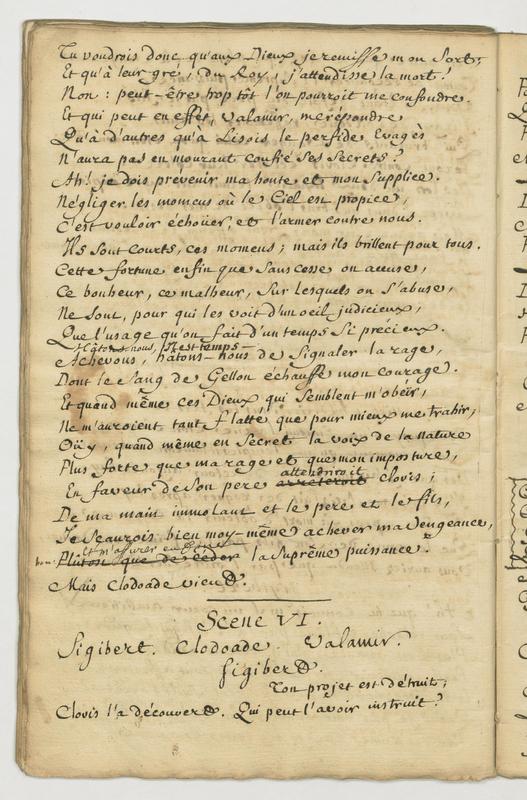 Tu voudrois donc qu'aux Dieux je remisse mon Sort;
Et qu'à leur gré, du Roy, j'attendisse la mort?
Non: peut-être trop tôt l'on pourroit me confondre.
Et qui peut en effet, Valamir, me répondre
Qu'à d'autres qu'à Lisois le perfide Evagès
N'aura pas en mourant confié ses Secrets?
Ah! je dois prévenir ma honte et mon Supplice.
Négliger les momens où le Ciel est propice,
C'est vouloir échoüer, et l'armer contre nous.
Ils sont courts, ces momens; mais ils brillent pour tous.
Cette fortune enfin que Sans cesse on accuse,
Ce bonheur, ce malheur, Sur lesquels on S'abuse,
Ne Sont, pour qui les voit d'un oeil judicieux,
Que l'usage qu'on fait d'un temps Si précieux.
Hâtons nous, Il est temps
Achevons, hâtons-nous de Signaler la rage,
Dont le Sang de Gellon échauffe mon courage.
Et quand même ces Dieux qui Semblent m'obéir,
Ne m'auroient tant flatté que pour mieux me trahir,
Oüy, quand même en Secret la voix de la nature
Plus forte que ma rage et que mon imposture,
attendriroit
En faveur de Son pere arrêteroit Clovis;
De ma main immolant et le pere et le fils,
Je Sçaurois bien moy-même achever ma Vengeance,
Et m'assurer
Plutôt que de céder la Suprême puissance.
Mais Clodoade vient.
Scene VI.
Sigibert. Clodoade. Valamir.
Sigibert.
Ton projet est détruit;
Clovis l'a découvert. Qui peut l'avoir instruit?